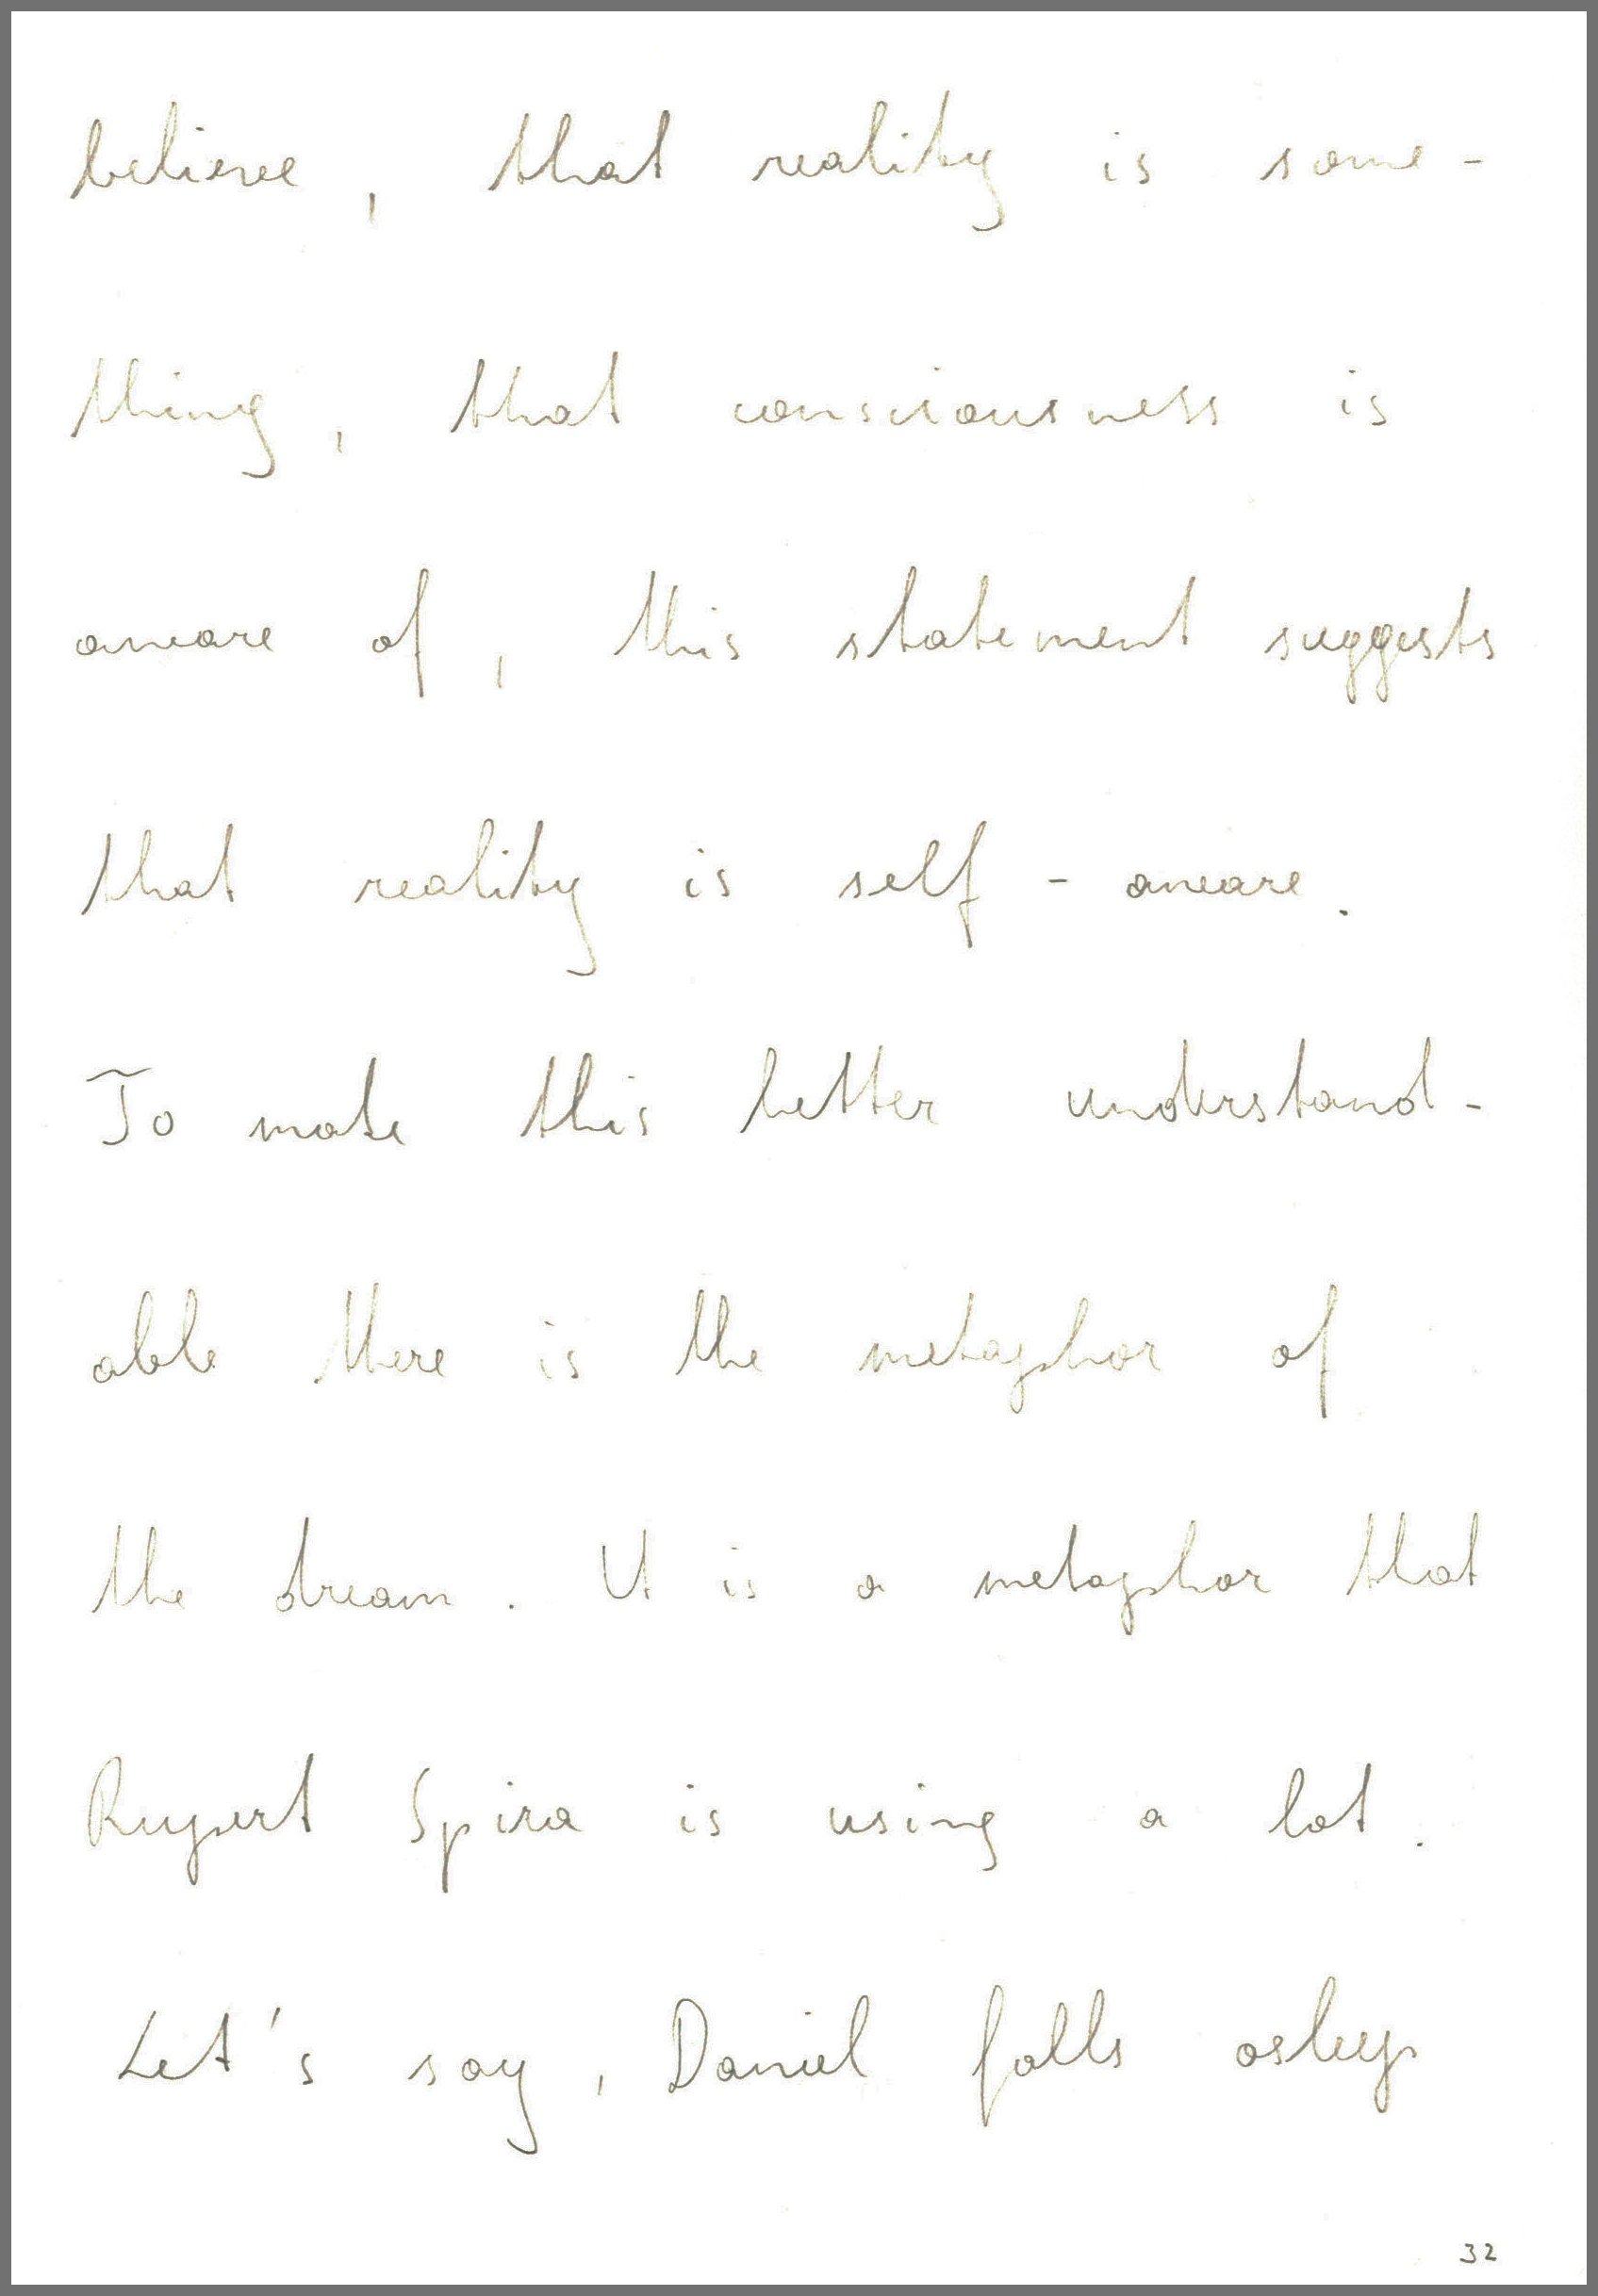 believe, that reality is some-
thing, that consciousness is
aware of, this statement suggests
that reality is self-aware.
To make this better understand-
able there is the metaphor of
the dream. It is a metaphor that
Rupert Spira is using a lot.
Let's say, Daniel falls asleep
32